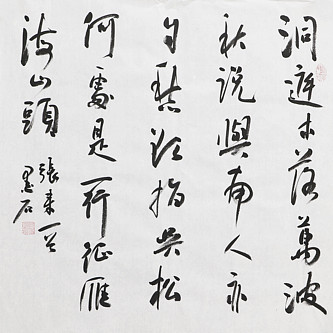 洞庭木落萬波
秋說與南人亦
自愁欲指吳松
何處是一行征雁
海山頭
張耒
墨石